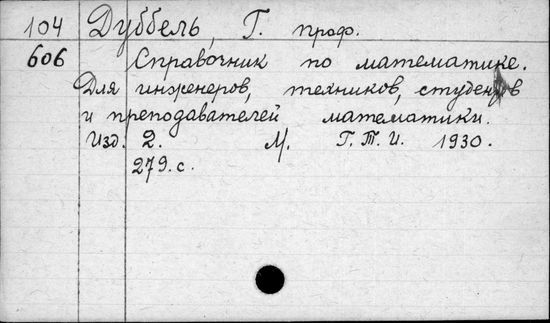 104 Дуббель, Г. проф.
606 Справочник по математике.
Для инженеров, техников, студентов
и преподавателей математики.
Изд. 2. М. Г.Т.И. 1930.
279.с.